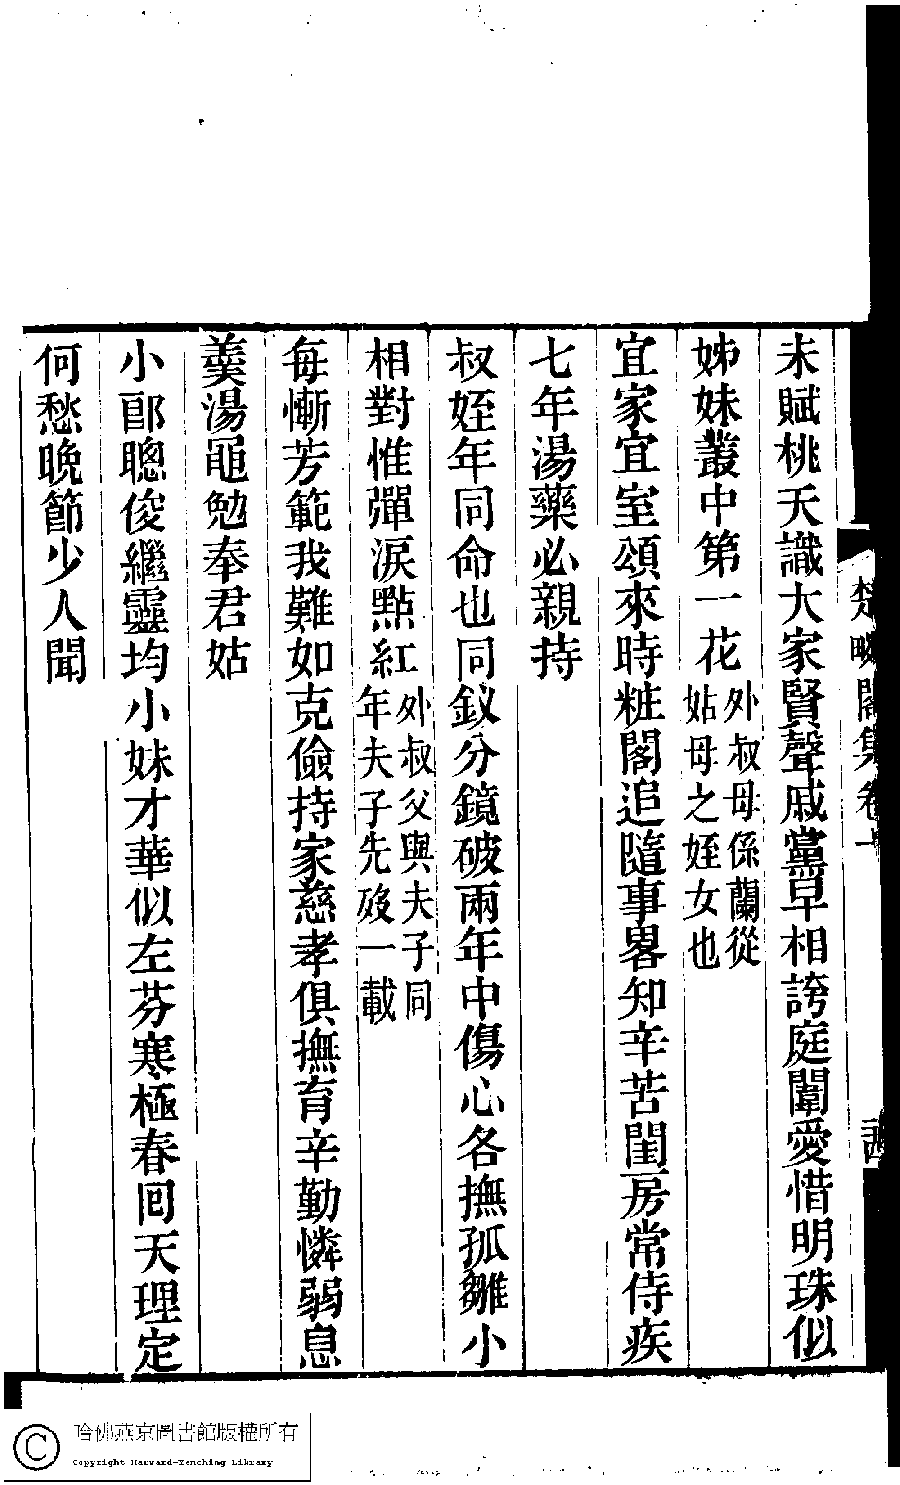 未賦桃夭識大家賢聲戚黨早相誇庭闈愛惜明珠似
姊妹叢中第一花外叔母係蘭從姑母之姪女也
宜家宜室頌來時粧閣追隨事畧知辛苦閨房常侍疾
七年湯藥必親持
叔姪年同命也同釵分鏡破兩年中傷心各撫孤雛小
相對惟彈淚點紅外叔父與夫子同年夫子先歿一載
每慚芳範我難如克儉持家慈孝俱撫育辛勤憐弱息
羹湯黽勉奉君姑
小郎聰俊繼靈均小妹才華似左芬寒極春回天理定
何愁晚節少人聞
楚畹閣集卷十
哈佛燕京圖書館版權所有
Copyright Harvard-Yenching Library